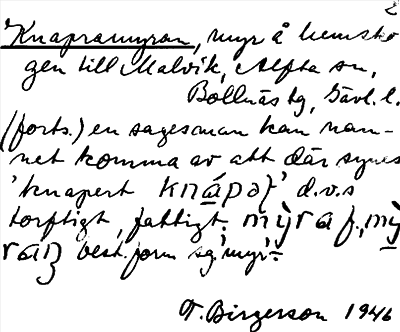 2
Knapramyran, myr å hemsko
gen till Malvik, Alfta sn,
Bollnäs tg, Gävl. l.
(forts.) en sagesman kan nam-
net komma av att där synes
'knapert knápət' d.v.s
torftigt, fattigt. mỳra f., mỳ
ran best. form sg. 'myr'.
T. Birgerson 1946